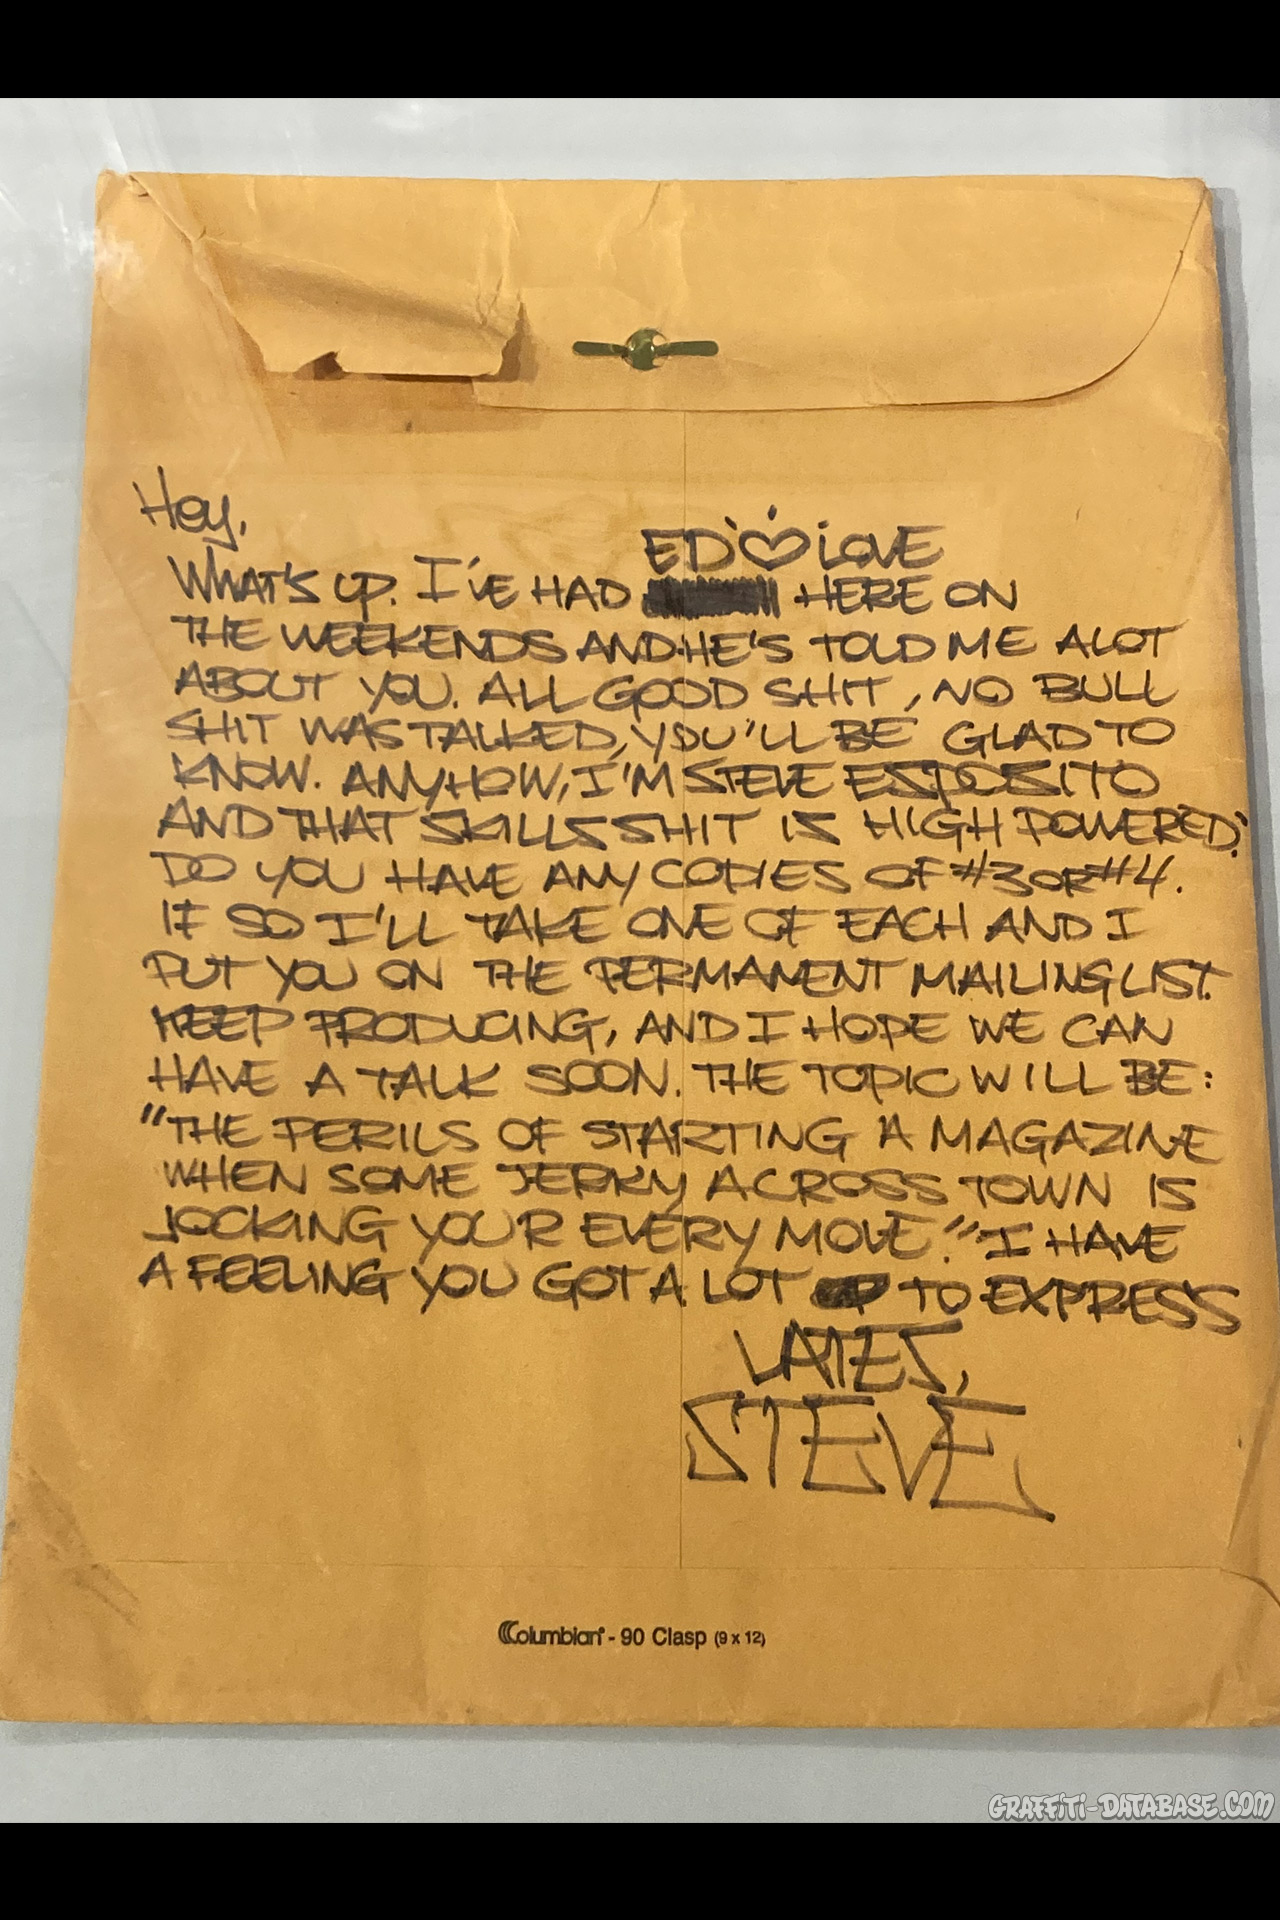 Hey,
ED ♡ LOVE
WHAT'S UP. I'VE HAD HERE ON
THE WEEKENDS AND HE'S TOLD ME ALOT
ABOUT YOU. ALL GOOD SHIT, NO BULL
SHIT WAS TALKED, YOU'LL BE GLAD TO
KNOW. ANYHOW, I'M STEVE ESPOSITO
AND THAT SKILLS SHIT IS HIGH POWERED.
DO YOU HAVE ANY COPIES OF #3 OR #4.
IF SO I'LL TAKE ONE OF EACH AND I
PUT YOU ON THE PERMANENT MAILING LIST.
KEEP PRODUCING, AND I HOPE WE CAN
HAVE A TALK SOON. THE TOPIC WILL BE:
"THE PERILS OF STARTING A MAGAZINE
WHEN SOME JERKY ACROSS TOWN IS
JOCKING YOUR EVERY MOVE." I HAVE
A FEELING YOU GOT A LOT TO EXPRESS
LATES,
STEVE
Columbian - 90 Clasp (9 x 12)
GRAFFITI-DATABASE.COM